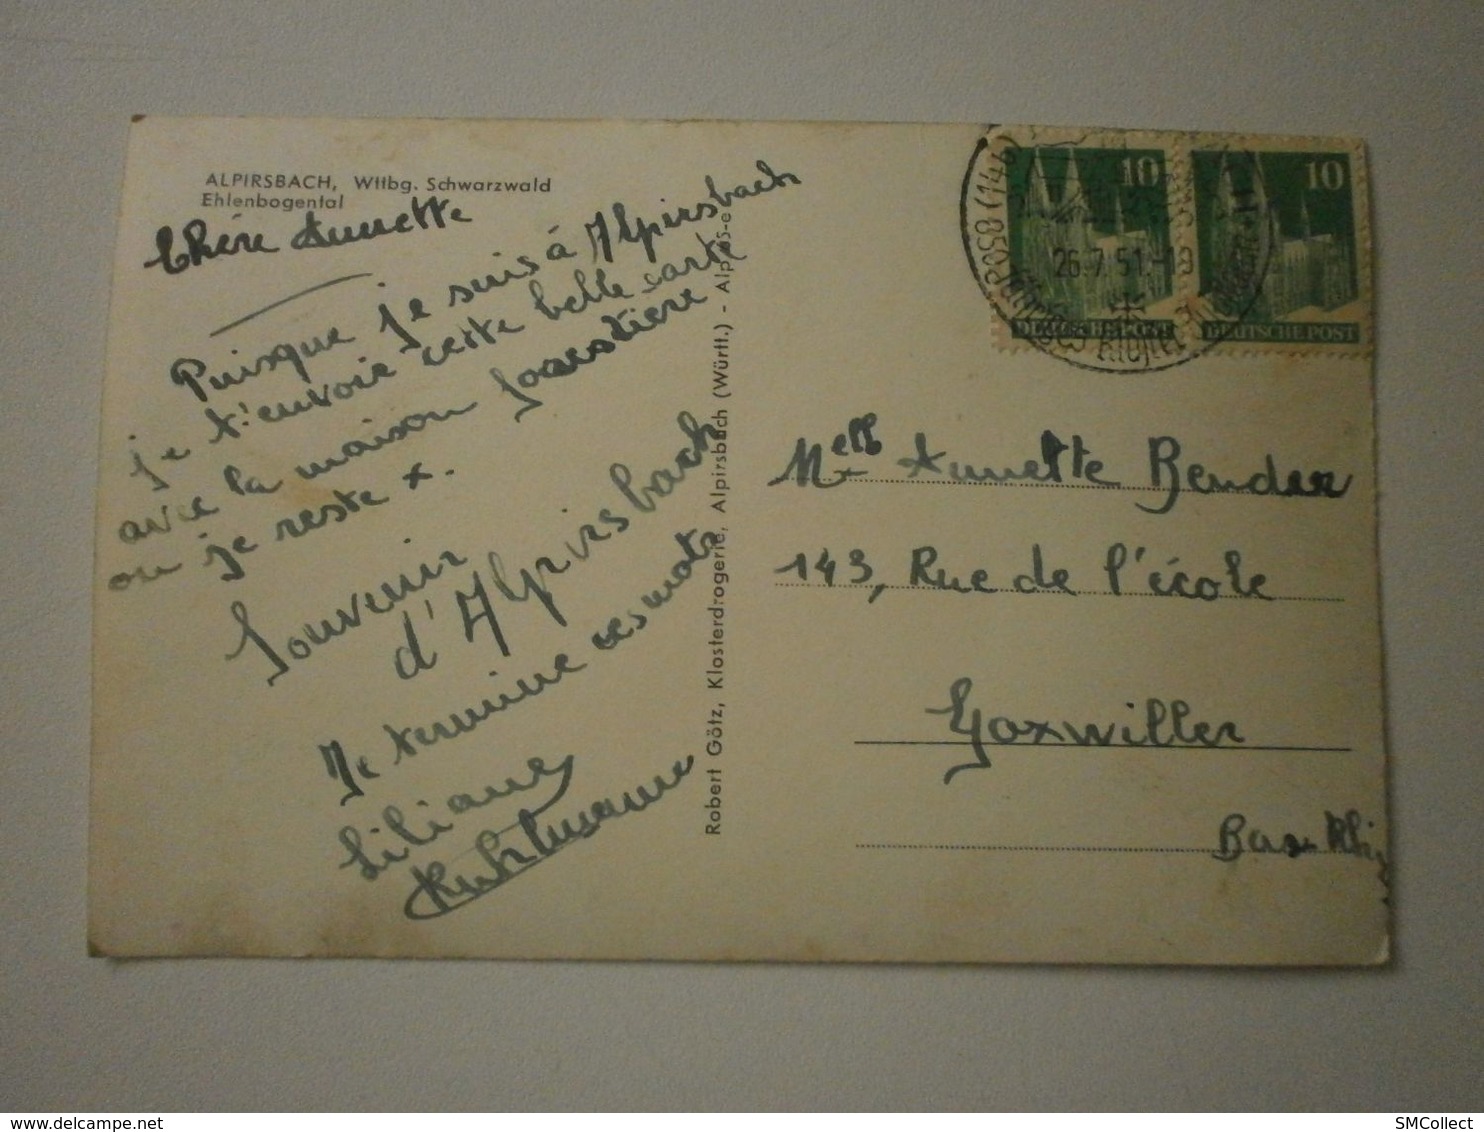 ALPIRSBACH, Wttbg. Schwarzwald
Ehlenbogental
Chère Annette
Puisque je suis à Alpirsbach
je t'envoie cette belle carte
avec la maison foerstiere
ou je reste x.
Souvenir
d'Alpirsbach
Je termine ces mots
Liliane
Kuhlmann
Robert Götz, Klosterdrogerie, Alpirsbach (Württ.) - Alp
(14b)
26.7.51.-19
10
DEUTSCHE POST
10
DEUTSCHE POST
Melle Annette Bender
143, Rue de l'école
Goxwiller
Bas Rhin
© SMCollect